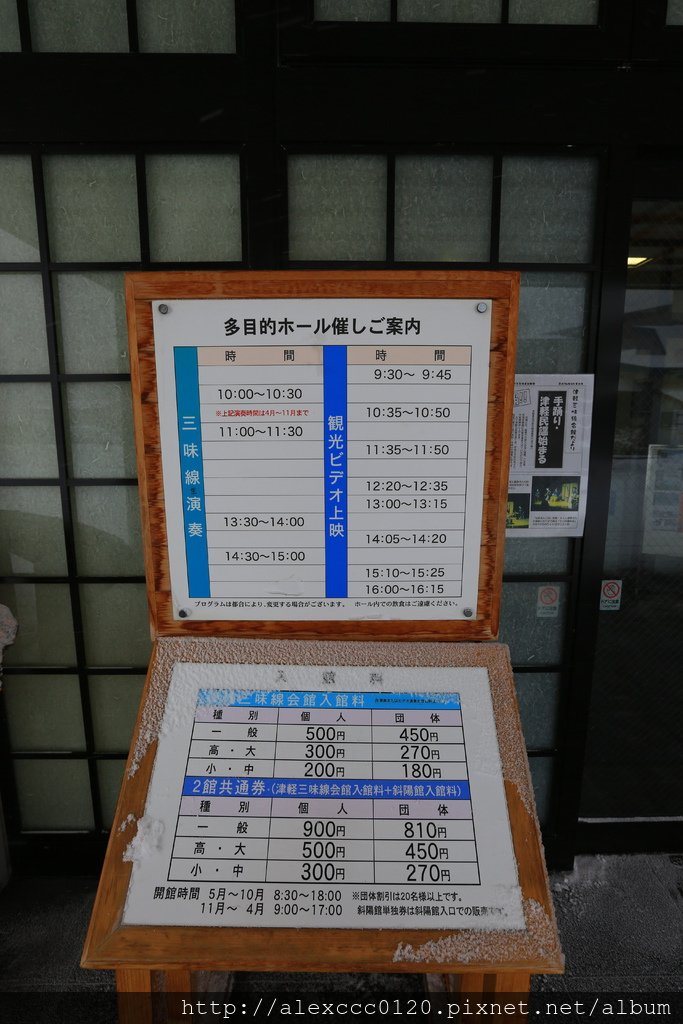 多目的ホール催しご案内
三味線演奏
時 間
10:00～10:30
※上記演奏時間は4月～11月まで
11:00～11:30
13:30～14:00
14:30～15:00
観光ビデオ上映
時 間
9:30～ 9:45
10:35～10:50
11:35～11:50
12:20～12:35
13:00～13:15
14:05～14:20
15:10～15:25
16:00～16:15
プログラムは都合により、変更する場合がございます。 ホール内での飲食はご遠慮ください。
手踊り・
津軽民謡始まる
入 館 料
三味線会館入館料
種 別 個 人 団 体
一 般 500円 450円
高・大 300円 270円
小・中 200円 180円
2館共通券・(津軽三味線会館入館料+斜陽館入館料)
種 別 個 人 団 体
一 般 900円 810円
高・大 500円 450円
小・中 300円 270円
開館時間 5月～10月 8:30～18:00 ※団体割引は20名様以上です。
11月～ 4月 9:00～17:00 斜陽館単独券は斜陽館入口での販売です。
http://alexccc0120.pixnet.net/album